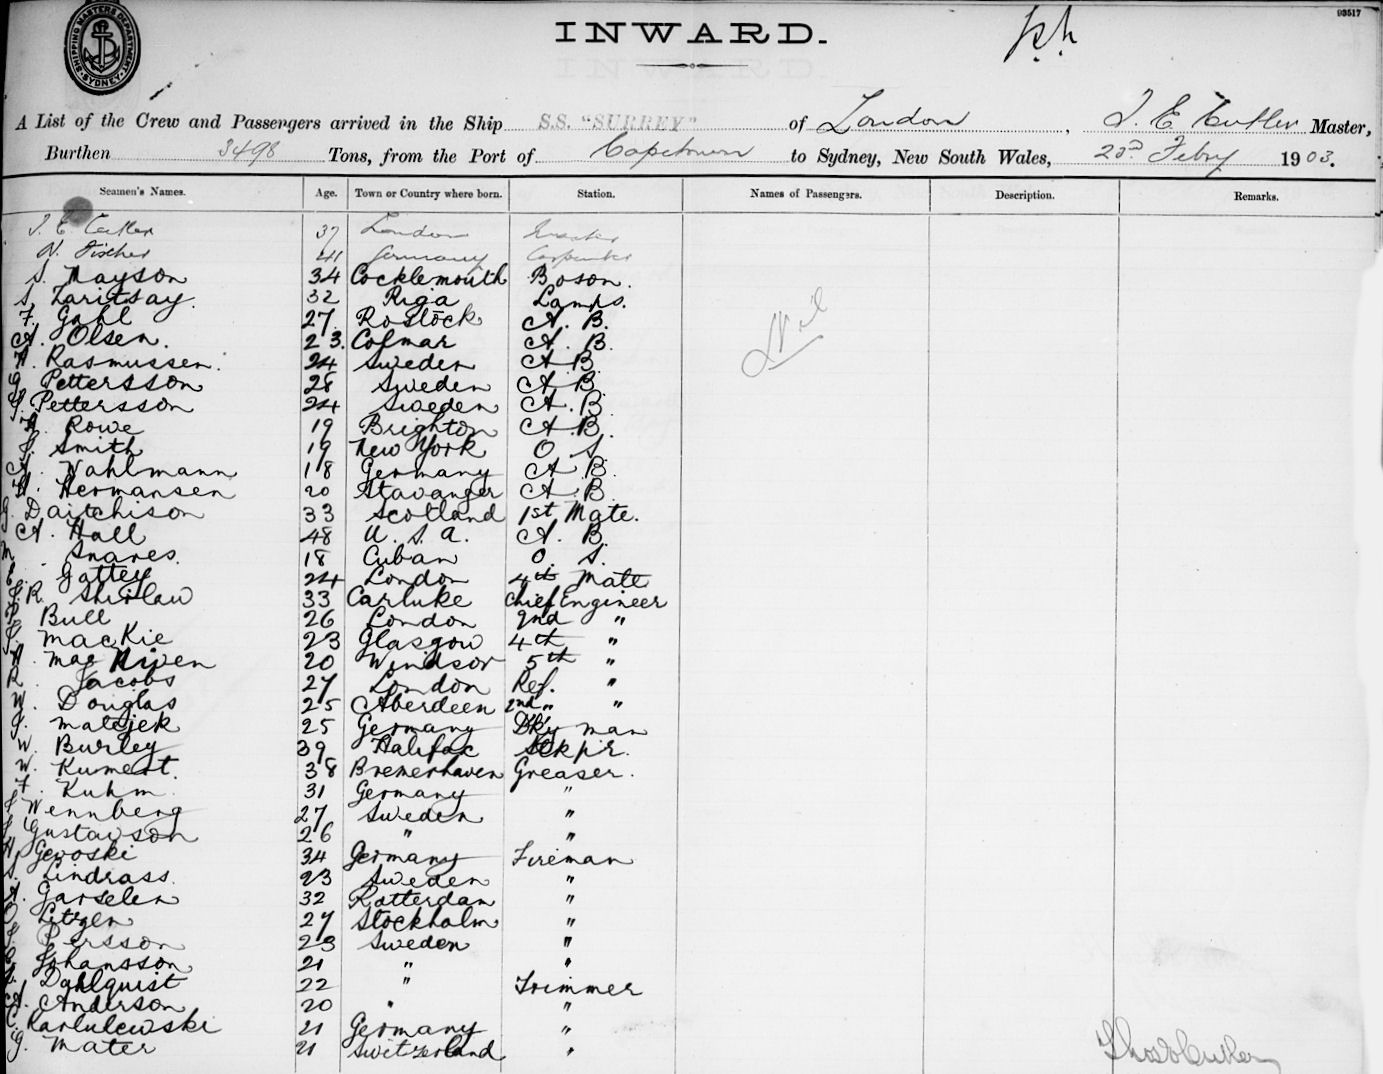 93517
SHIPPING MASTERS DEPARTMENT SYDNEY
INWARD.
A List of the Crew and Passengers arrived in the Ship S.S. "SURREY" of London, T. E. Cutler Master,
Burthen 3498 Tons, from the Port of Capetown to Sydney, New South Wales, 23rd Febry 1903.
Seamen's Names. Age. Town or Country where born. Station. Names of Passengers. Description. Remarks.
T. E. Cutler 37 London Master
N. Fischer 41 Germany Carpenter
S. Mayson 34 Cocklemouth Boson.
S. Zaritsay. 32 Riga Lamps.
F. Gahl 27. Rostock A. B.
Nil
A. Olsen. 23. Colmar A. B.
H. Rasmussen. 24 Sweden A B.
G. Pettersson 28 Sweden A B.
G. Pettersson 24 Sweden A. B.
Rowe 19 Brighton A B.
Smith 19 New York O S.
A. Wahlmann 18 Germany A B.
H. Hermansen 20 Stavanger A B.
G. Daitchison 33 Scotland 1st Mate.
A. Hall 48 U. S. A. A. B.
M. Snares. 18 Cuban O. S.
Gattey 24 London 4th Mate
R. Shirlaw 33 Carluke Chief Engineer
Bull 26 London 2nd "
MacKie 23 Glasgow 4th "
Mac Niven 20 Windsor 5th "
R. Jacobs 27 London Ref. "
W. Douglas 25 Aberdeen 2nd " "
Matejek 25 Germany Dky man
W. Burley 39 Halifax Stkpr.
W. Kumert. 38 Bremerhaven Greaser.
F. Kuhm 31 Germany "
Wennberg 27 Sweden "
Gustavson 26 " "
Geroski 34 Germany Fireman
S. Lindrass. 23 Sweden "
Garselen 32 Rotterdam "
Litzen 27 Stockholm "
Persson 23 Sweden "
Johansson 21 " "
Dahlquist 22 " Trimmer
A. Anderson 20 " "
C. Karlulewski 21 Germany "
G. Mater 21 Switzerland "